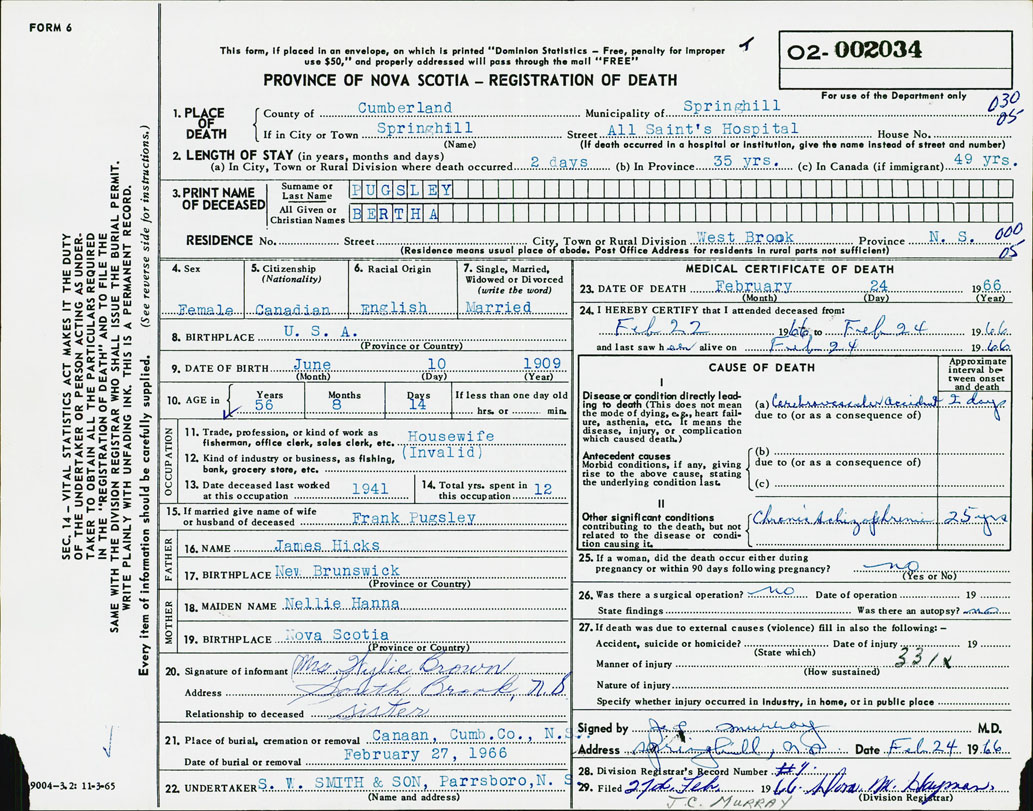 FORM 6
This form, if placed in an envelope, on which is printed "Dominion Statistics – Free, penalty for improper
use $50," and properly addressed will pass through the mail "FREE"
02-002034
PROVINCE OF NOVA SCOTIA – REGISTRATION OF DEATH
For use of the Department only
030
05
1. PLACE OF DEATH
County of Cumberland Municipality of Springhill
If in City or Town Springhill Street All Saint's Hospital House No.
(Name) (If death occurred in a hospital or institution, give the name instead of street and number)
2. LENGTH OF STAY (in years, months and days)
(a) In City, Town or Rural Division where death occurred 2 days (b) In Province 35 yrs. (c) In Canada (if immigrant) 49 yrs.
3. PRINT NAME OF DECEASED
Surname or Last Name PUGSLEY
All Given or Christian Names BERTHA
RESIDENCE No. Street City, Town or Rural Division West Brook Province N. S. 000
05
(Residence means usual place of abode. Post Office Address for residents in rural parts not sufficient)
4. Sex Female
5. Citizenship (Nationality) Canadian
6. Racial Origin English
7. Single, Married, Widowed or Divorced (write the word) Married
8. BIRTHPLACE U. S. A.
(Province or Country)
9. DATE OF BIRTH June 10 1909
(Month) (Day) (Year)
10. AGE in Years 56 Months 8 Days 14 If less than one day old hrs. or min.
OCCUPATION
11. Trade, profession, or kind of work as fisherman, office clerk, sales clerk, etc. Housewife
(Invalid)
12. Kind of industry or business, as fishing, bank, grocery store, etc.
13. Date deceased last worked at this occupation 1941
14. Total yrs. spent in this occupation 12
15. If married give name of wife or husband of deceased Frank Pugsley
FATHER
16. NAME James Hicks
17. BIRTHPLACE New Brunswick
(Province or Country)
MOTHER
18. MAIDEN NAME Nellie Hanna
19. BIRTHPLACE Nova Scotia
(Province or Country)
20. Signature of informant Mrs Wylie Brown
Address South Brook, N.S
Relationship to deceased sister
21. Place of burial, cremation or removal Canaan, Cumb.Co., N.S.
Date of burial or removal February 27, 1966
22. UNDERTAKER S. W. SMITH & SON, Parrsboro, N. S
(Name and address)
MEDICAL CERTIFICATE OF DEATH
23. DATE OF DEATH February 24 1966
(Month) (Day) (Year)
24. I HEREBY CERTIFY that I attended deceased from:
Feb 22 1966 to Feb 24 1966
and last saw her alive on Feb 24 1966
CAUSE OF DEATH
Approximate interval between onset and death
I
Disease or condition directly leading to death (This does not mean the mode of dying, e.g., heart failure, asthenia, etc. It means the disease, injury, or complication which caused death.)
(a) Cerebrovascular accident 2 days
due to (or as a consequence of)
Antecedent causes
Morbid conditions, if any, giving rise to the above cause, stating the underlying condition last.
(b)
due to (or as a consequence of)
(c)
II
Other significant conditions contributing to the death, but not related to the disease or condition causing it.
Chronic schizophrenic 25 yrs
25. If a woman, did the death occur either during pregnancy or within 90 days following pregnancy? no
(Yes or No)
26. Was there a surgical operation? no Date of operation 19
State findings Was there an autopsy? no
27. If death was due to external causes (violence) fill in also the following: –
Accident, suicide or homicide? Date of injury 19
(State which) 331x
Manner of injury
(How sustained)
Nature of injury
Specify whether injury occurred in industry, in home, or in public place
Signed by J. C. Murray M.D.
Address Springhill, N.S Date Feb 24 1966
28. Division Registrar's Record Number #9.
29. Filed 27d Feb. 1966
(Division Registrar)
J.C. MURRAY
SEC. 14 – VITAL STATISTICS ACT MAKES IT THE DUTY
OF THE UNDERTAKER OR PERSON ACTING AS UNDER-
TAKER TO OBTAIN ALL THE PARTICULARS REQUIRED
IN THE "REGISTRATION OF DEATH" AND TO FILE THE
SAME WITH THE DIVISION REGISTRAR WHO SHALL ISSUE THE BURIAL PERMIT.
WRITE PLAINLY WITH UNFADING INK. THIS IS A PERMANENT RECORD.
Every item of information should be carefully supplied. (See reverse side for instructions.)
9004–3.2: 11-3-65